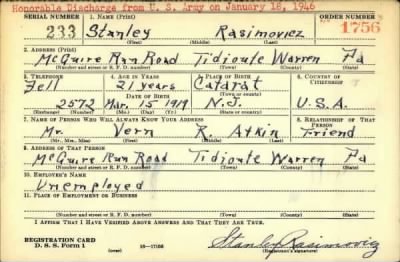 Honorable Discharge from U. S. Army on January 18, 1946
SERIAL NUMBER 1. NAME (Print) ORDER NUMBER
233 Stanley Rasimovicz 1756
(First) (Middle) (Last)
2. ADDRESS (Print)
McGuire Run Road Tidioute Warren Pa
(Number and street or R. F. D. number) (Town) (County) (State)
3. TELEPHONE 4. AGE IN YEARS 5. PLACE OF BIRTH 6. COUNTRY OF CITIZENSHIP
Fell 21 years Catarat
DATE OF BIRTH (Town or county)
2572 Mar. 15 1919 N.J. U.S.A.
(Exchange) (Number) (Mo.) (Day) (Yr.) (State or country)
7. NAME OF PERSON WHO WILL ALWAYS KNOW YOUR ADDRESS 8. RELATIONSHIP OF THAT PERSON
Mr. Vern R. Atkin Friend
(Mr., Mrs., Miss) (First) (Middle) (Last)
9. ADDRESS OF THAT PERSON
McGuire Run Road Tidioute Warren Pa
(Number and street or R. F. D. number) (Town) (County) (State)
10. EMPLOYER'S NAME
Unemployed
11. PLACE OF EMPLOYMENT OR BUSINESS
(Number and street or R. F. D. number) (Town) (County) (State)
I AFFIRM THAT I HAVE VERIFIED ABOVE ANSWERS AND THAT THEY ARE TRUE.
REGISTRATION CARD
D. S. S. Form 1 (over) 16—17105 Stanley Rasimovicz
(Registrant's signature)